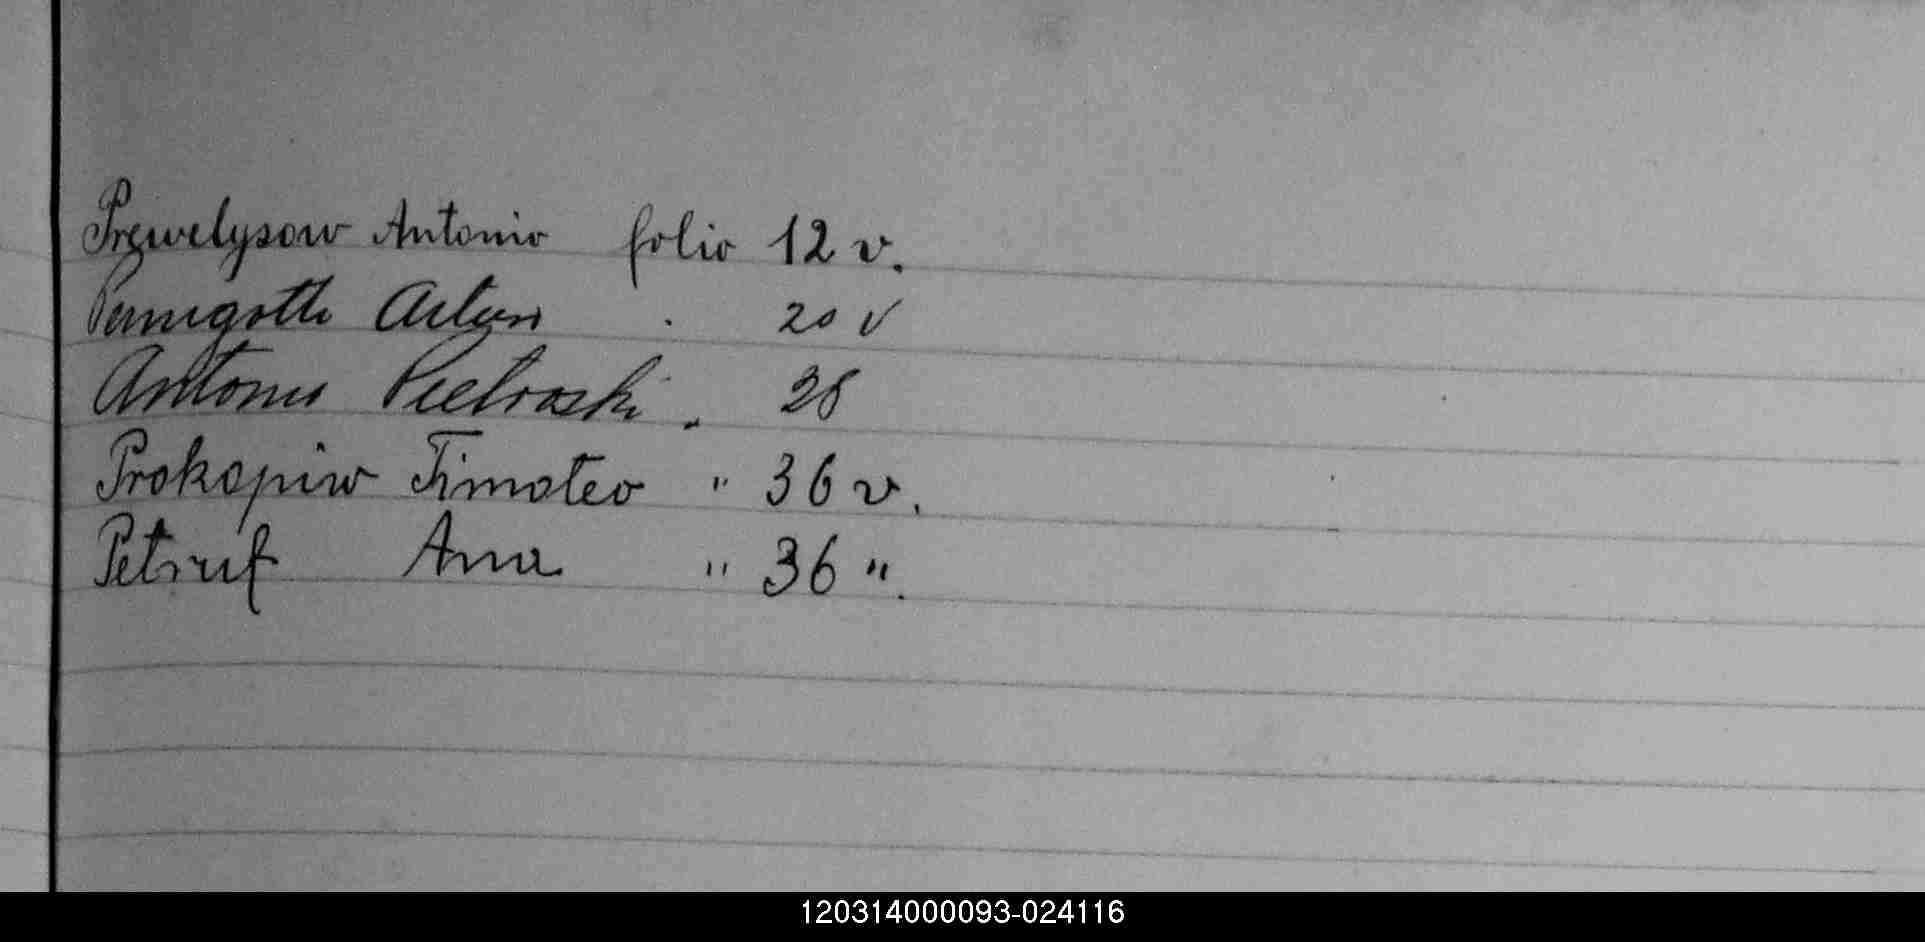 Prewelysow Antonio folio 12 v.
Pernigotti Arturo . 20 v
Antonio Pietroski . 28
Prokopiw Timoteo " 36 v.
Petruf Ana " 36 ".
120314000093-024116